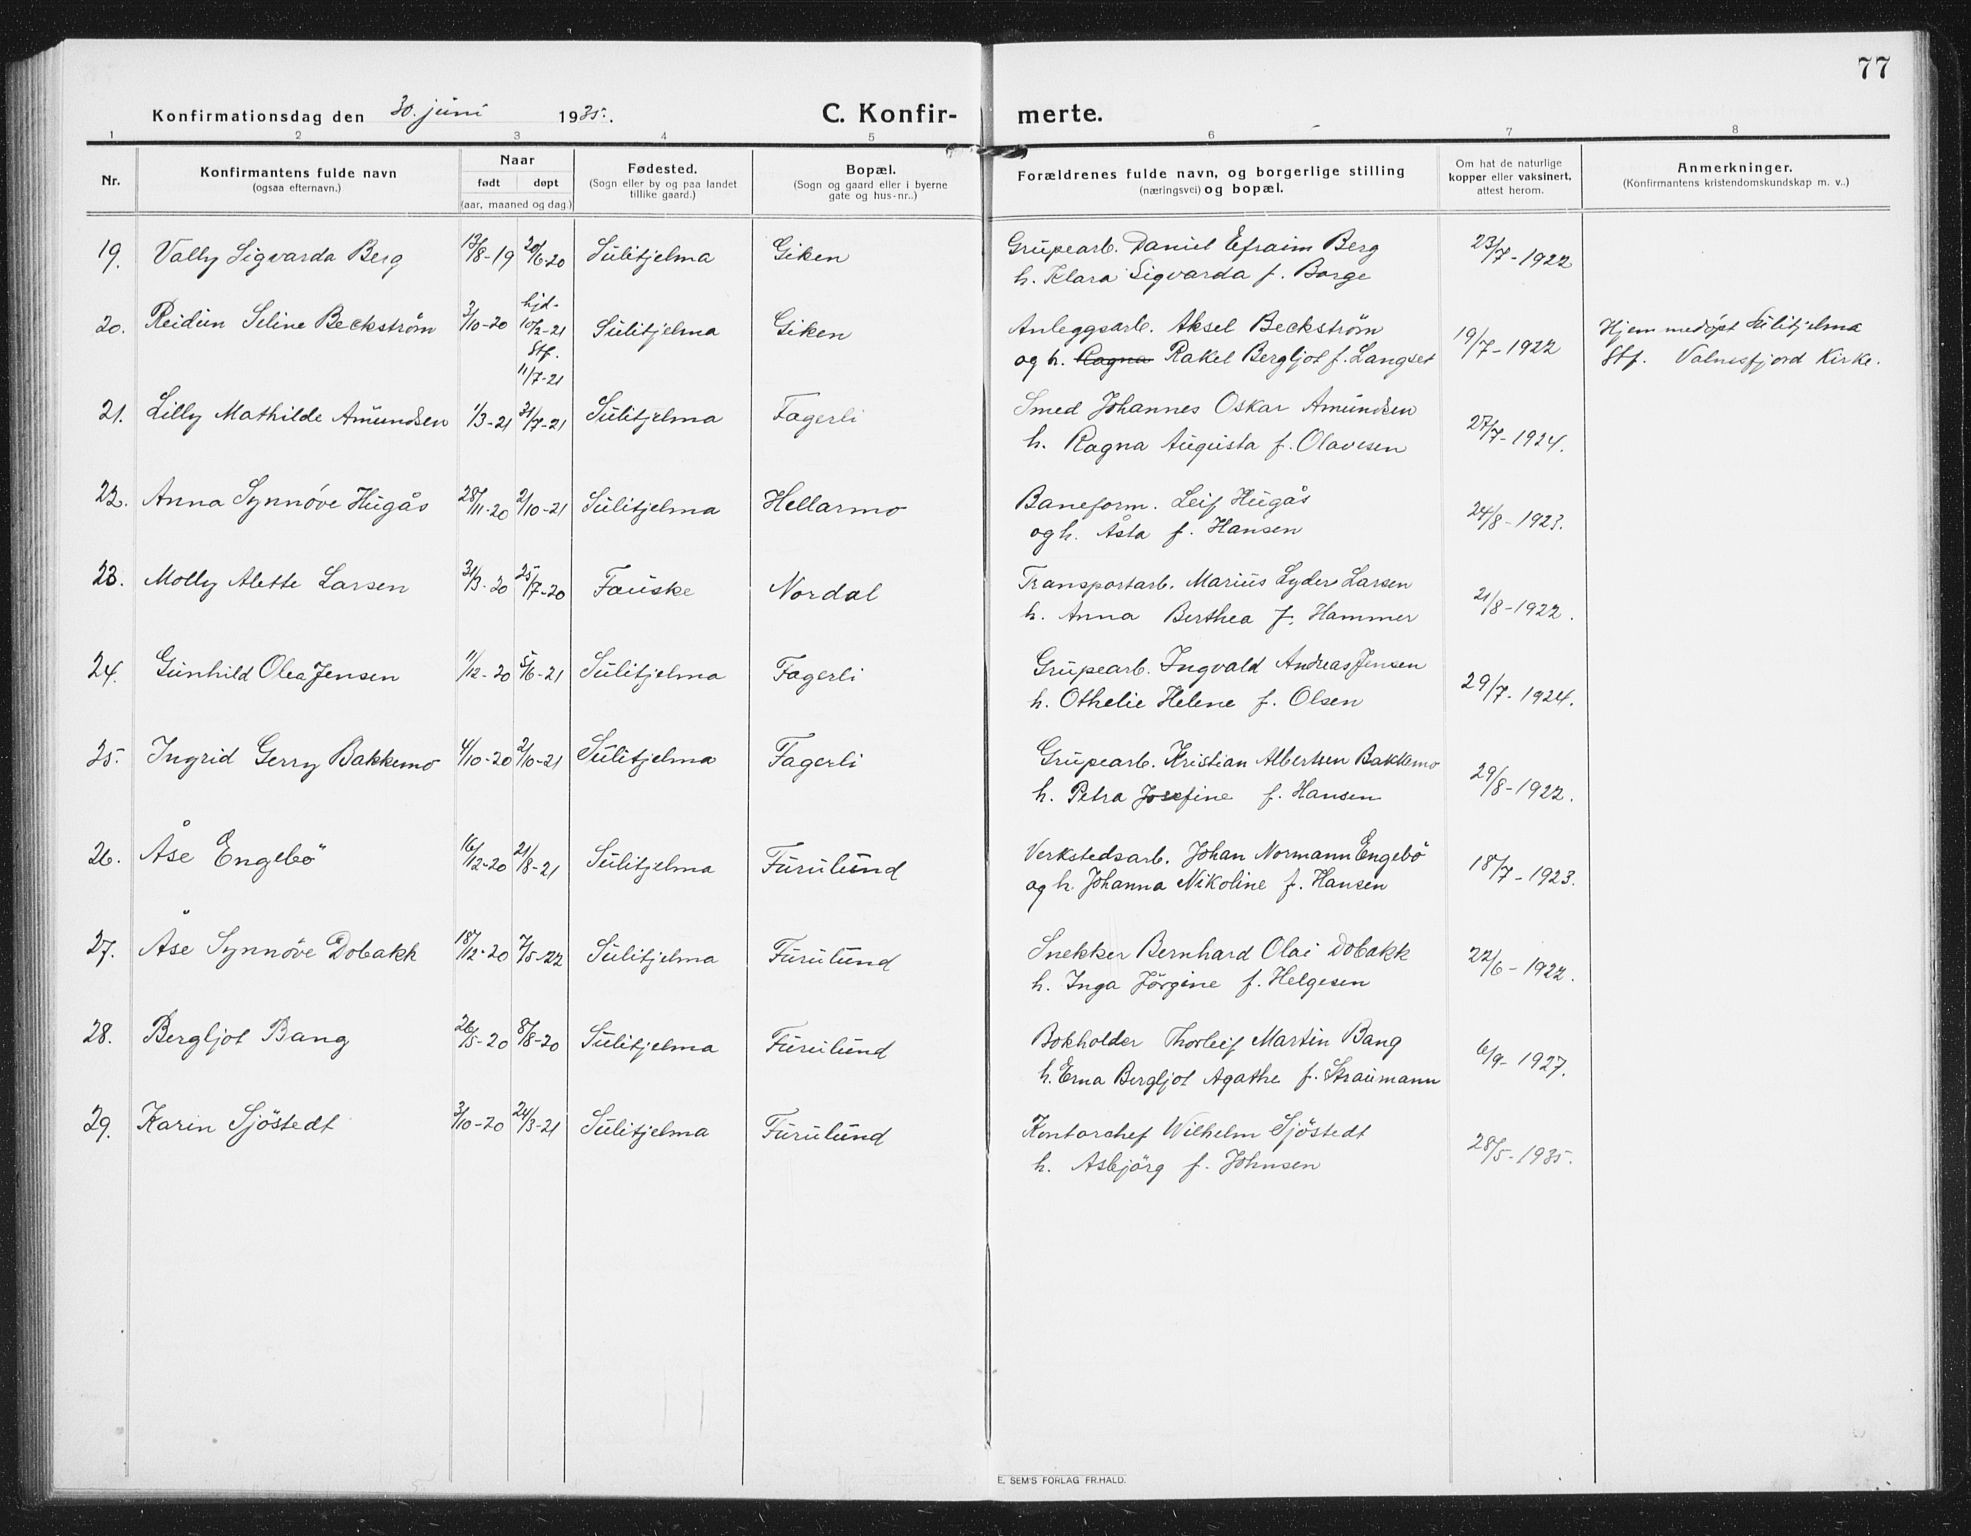 77
Konfirmationsdag den 30. juni 1935.
C. Konfir- merte.
1 2 3 4 5 6 7 8
Nr.
Konfirmantens fulde navn
(ogsaa efternavn.)
Naar
født døpt
(aar, maaned og dag.)
Fødested.
(Sogn eller by og paa landet
tillike gaard.)
Bopæl.
(Sogn og gaard eller i byerne
gate og hus-nr..)
Forældrenes fulde navn, og borgerlige stilling
(næringsvei) og bopæl.
Om hat de naturlige
kopper eller vaksinert,
attest herom.
Anmerkninger.
(Konfirmantens kristendomskundskap m. v..)
19. Vally Sigvarda Berg 13/8-19 20/6-20 Sulitjelma Giken Grupearb. Daniel Efraim Berg 23/7-1922
h. Klara Sigvarda f. Borge
20. Reidun Seline Beckstrøm 3/10-20 hjd. 10/2-21 Stf. 11/7-21 Sulitjelma Giken Anleggsarb. Aksel Beckstrøm 19/7-1922 Hjemmedøpt Sulitjelma
og h. Ragna Rakel Bergljot f. Langset Stf. Valnesfjord Kirke.
21. Lilly Mathilde Amundsen 1/3-21 31/7-21 Sulitjelma Fagerli Smed Johannes Oskar Amundsen 27/7-1924.
h. Ragna Augusta f. Olavesen
22. Anna Synnøve Hugås 28/11-20 2/10-21 Sulitjelma Hellarmo Baneform. Leif Hugås 24/8-1923.
og h. Åsta f. Hansen
23. Molly Alette Larsen 31/3-20 25/7-20 Fauske Nordal Transportarb. Marius Lyder Larsen 21/8-1922.
h. Anna Berthea f. Hammer
24. Gunhild Olea Jensen 11/12-20 5/6-21 Sulitjelma Fagerli Grupearb. Ingvald Andreas Jensen 29/7-1924.
h. Othelie Helene f. Olsen
25. Ingrid Gerry Bakkemo 4/10-20 2/10-21 Sulitjelma Fagerli Grupearb. Kristian Albertsen Bakkemo 29/8-1922.
h. Petra Josefine f. Hansen
26. Åse Engebø 16/12-20 21/8-21 Sulitjelma Furulund Verkstedsarb. Johan Normann Engebø 18/7-1923.
og h. Johanna Nikoline f. Hansen
27. Åse Synnøve Dobakk 18/12-20 7/5-22 Sulitjelma Furulund Snekker Bernhard Olai Dobakk 22/6-1922.
h. Inga Jørgine f. Helgesen
28. Bergljot Bang 26/5-20 8/8-20 Sulitjelma Furulund Bokholder Thorleif Martin Bang 6/9-1927.
h. Erna Bergljot Agathe f. Straumann
29. Karin Sjöstedt 3/10-20 24/3-21 Sulitjelma Furulund Kontorchef Wilhelm Sjöstedt 28/5-1935.
h. Asbjörg f. Johnsen
E. SEM'S FORLAG FR.HALD.